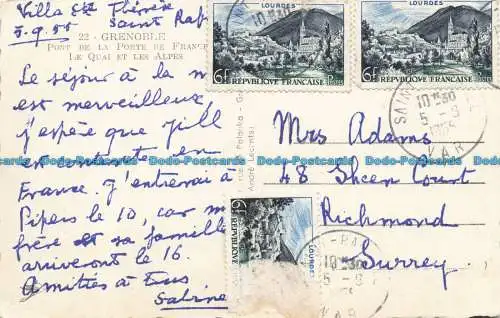 Villa Ste Thérèse
Saint Raf
5.9.55
22 - GRENOBLE
PONT DE LA PORTE DE FRANCE
LE QUAI ET LES ALPES
Le séjour à la m
est merveilleux,
j'espère que Jill
est contente en
France. J'
à
Pipers le 10, car m
frère et sa famille
arriveront le 16.
Amitiés à tous
Sabine
Mrs Adams
48 Sheen Court
Richmond
Surrey
LOURDES
6F RÉPUBLIQUE FRANÇAISE POSTES
LOURDES
6F RÉPUBLIQUE FRANÇAISE
6F RÉPUBLIQUE
LOURDES
10H30
10H30
5-9
VAR
10H30
5-9
VAR
André Leconte
Dodo-Postcards
Dodo-Postcards
Dodo-Postcards
Dodo-Postcards
Dodo-Postcards